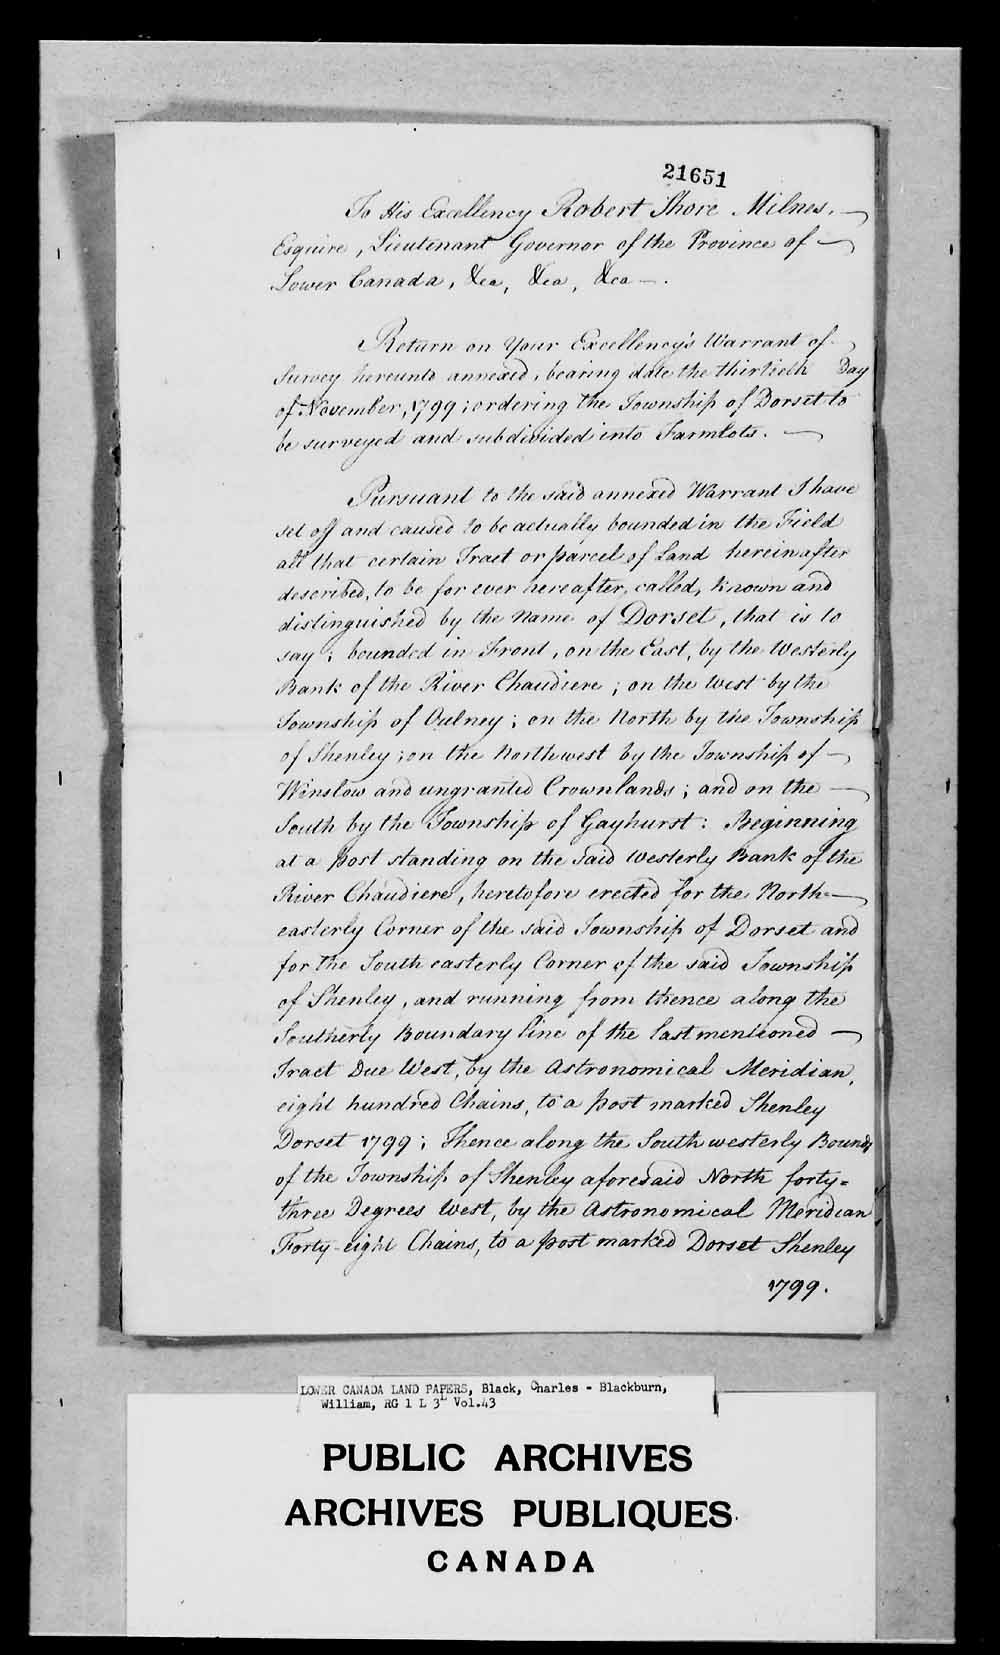 21651
To His Excellency Robert Shore Milnes,
Esquire, Lieutenant Governor of the Province of
Lower Canada, &ca, &ca, &ca —.
Return on Your Excellency's Warrant of
Survey hereunto annexed, bearing date the thirtieth Day
of November, 1799; ordering the Township of Dorset to
be surveyed and subdivided into Farmlots. —
Pursuant to the said annexed Warrant I have
set off and caused to be actually bounded in the Field
all that certain Tract or parcel of Land herein after
described, to be for ever hereafter, called, known and
distinguished by the Name of Dorset, that is to
say; bounded in Front, on the East, by the Westerly
Bank of the River Chaudiere; on the West by the
Township of Oulney; on the North by the Township
of Shenley; on the Northwest by the Township of —
Winslow and ungranted Crownlands; and on the —
South by the Township of Gayhurst: Beginning
at a post standing on the said Westerly Bank of the
River Chaudiere, heretofore erected for the North-
easterly Corner of the said Township of Dorset and
for the South easterly Corner of the said Township
of Shenley, and running from thence along the
Southerly Boundary line of the last mentioned —
Tract Due West, by the Astronomical Meridian,
eight hundred Chains, to a post marked Shenley
Dorset 1799; Thence along the Southwesterly Bounds
of the Township of Shenley aforesaid North forty=
three Degrees West, by the Astronomical Meridian
Forty-eight Chains, to a post marked Dorset Shenley
1799.
LOWER CANADA LAND PAPERS, Black, Charles - Blackburn,
William, RG 1 L 3L Vol.43
PUBLIC ARCHIVES
ARCHIVES PUBLIQUES
CANADA